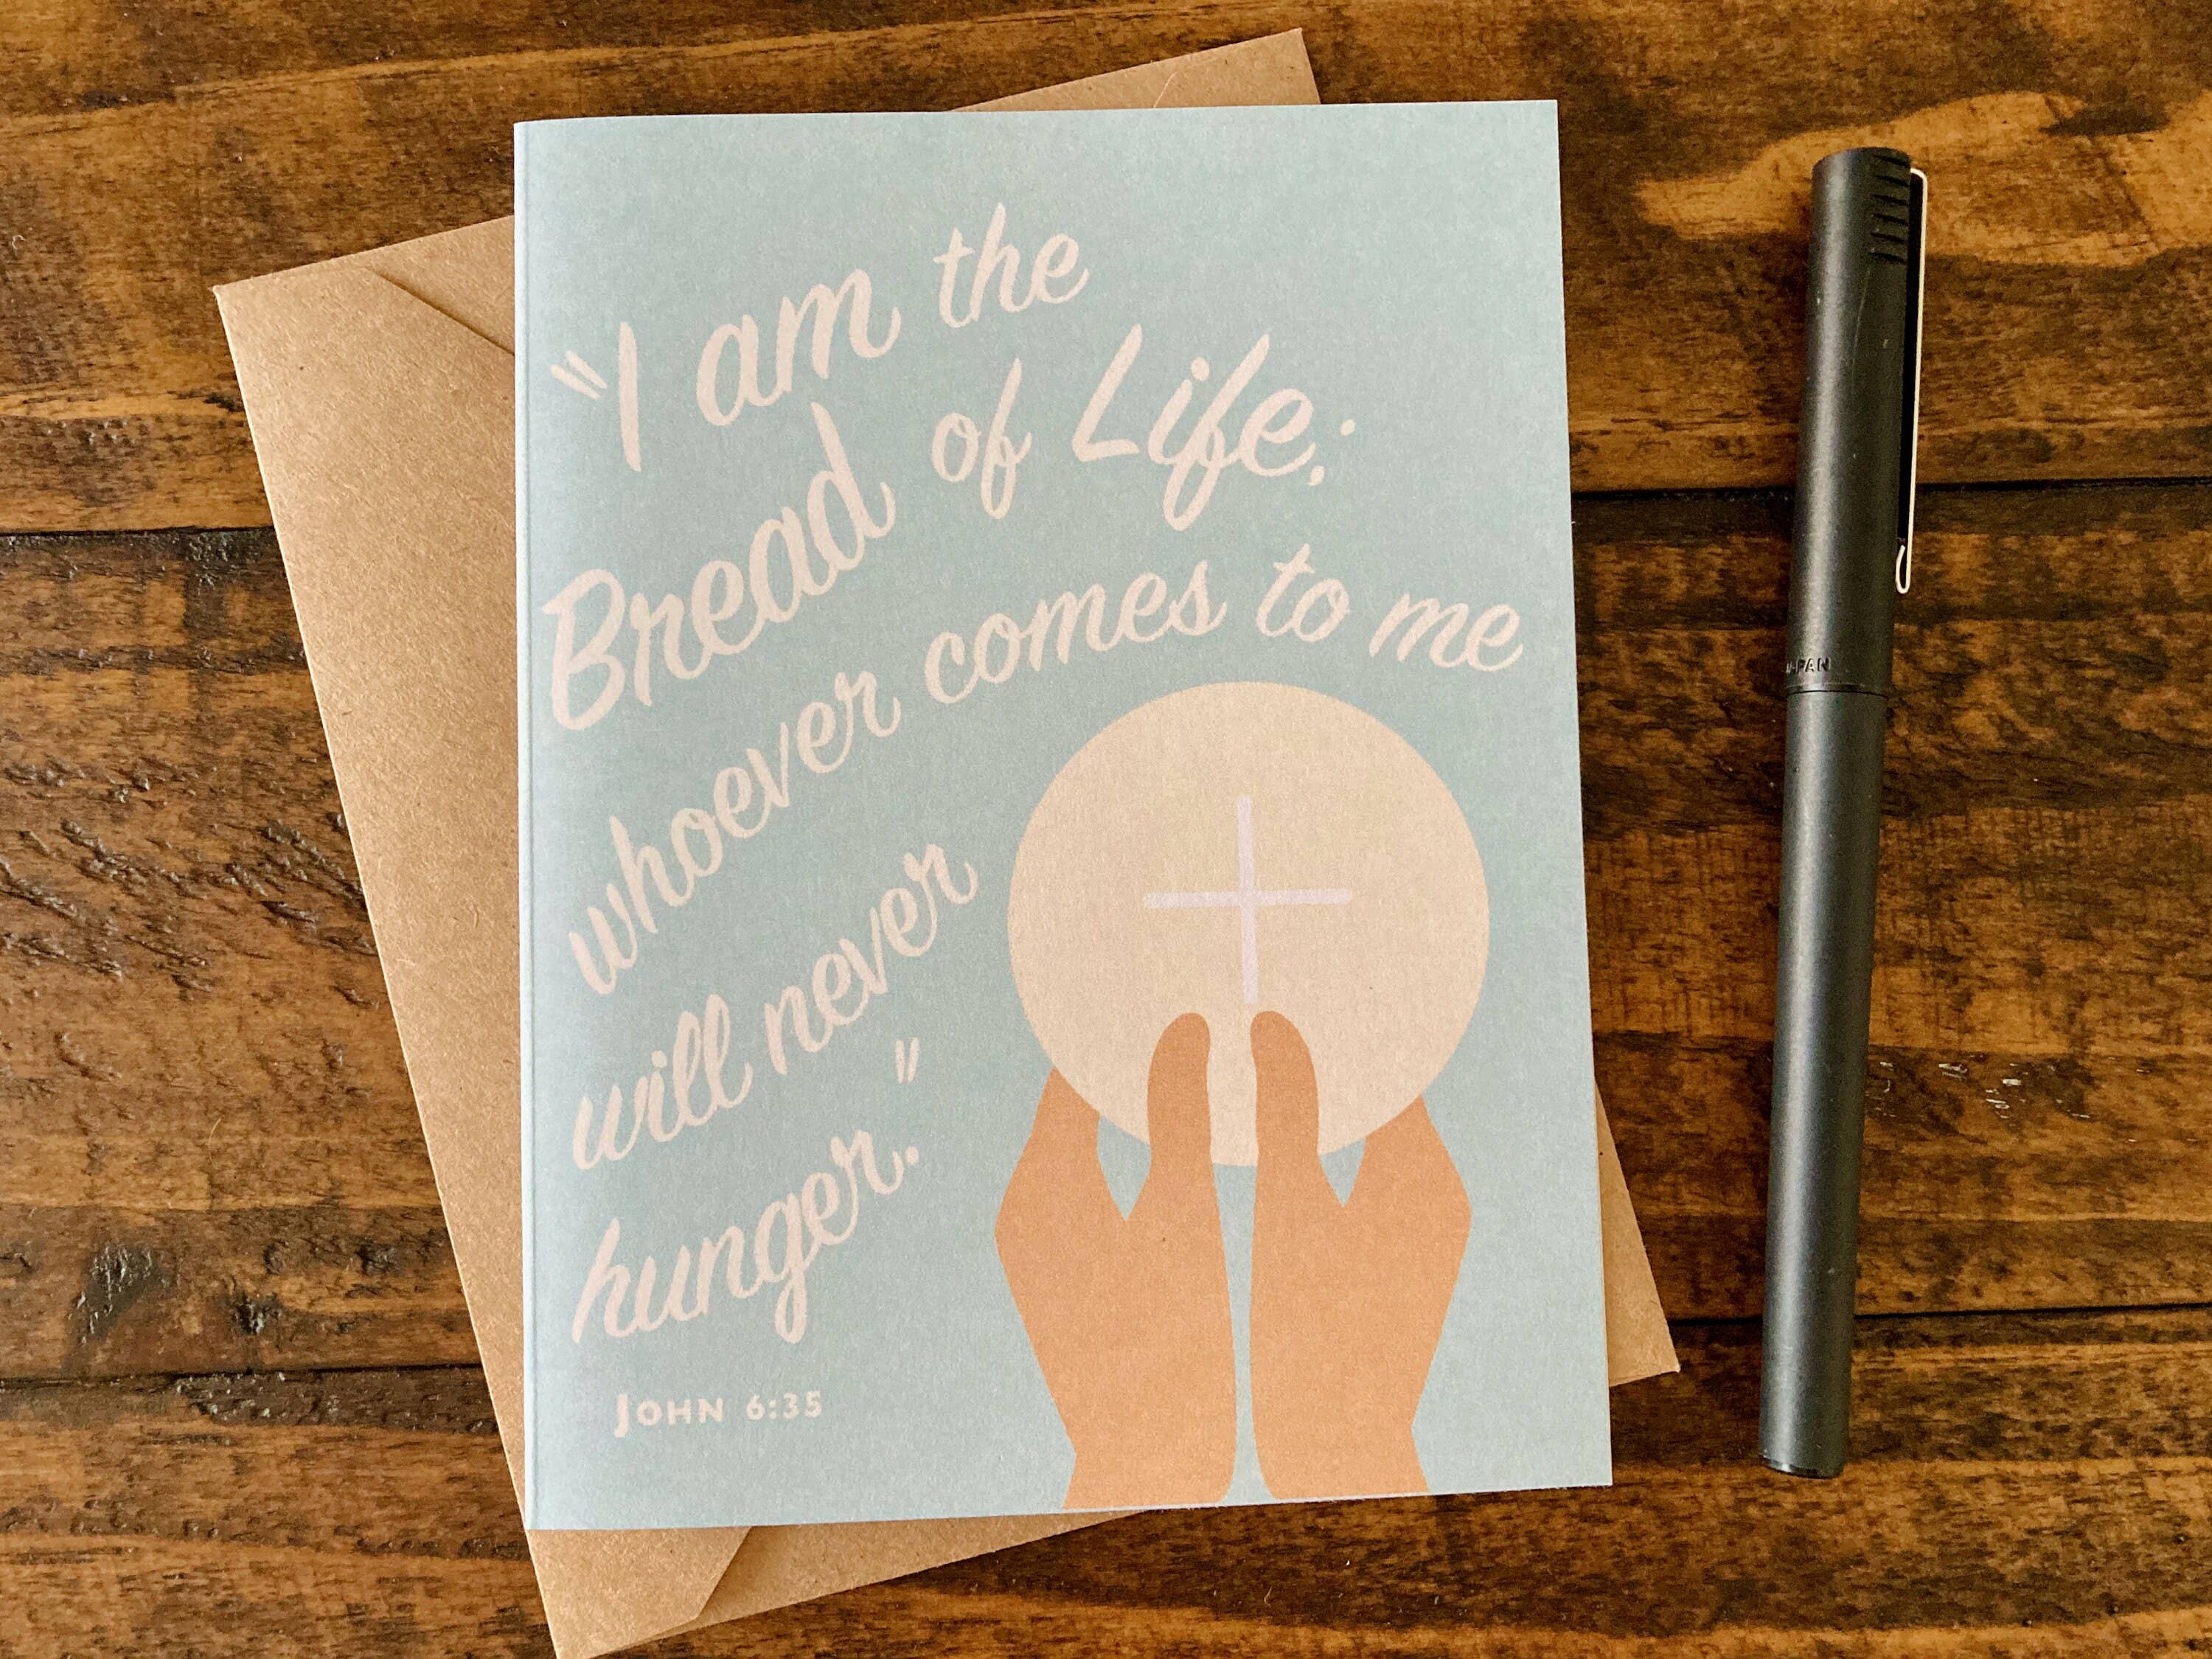 "I am the
Bread of Life;
whoever comes to me
will never
hunger."
JOHN 6:35